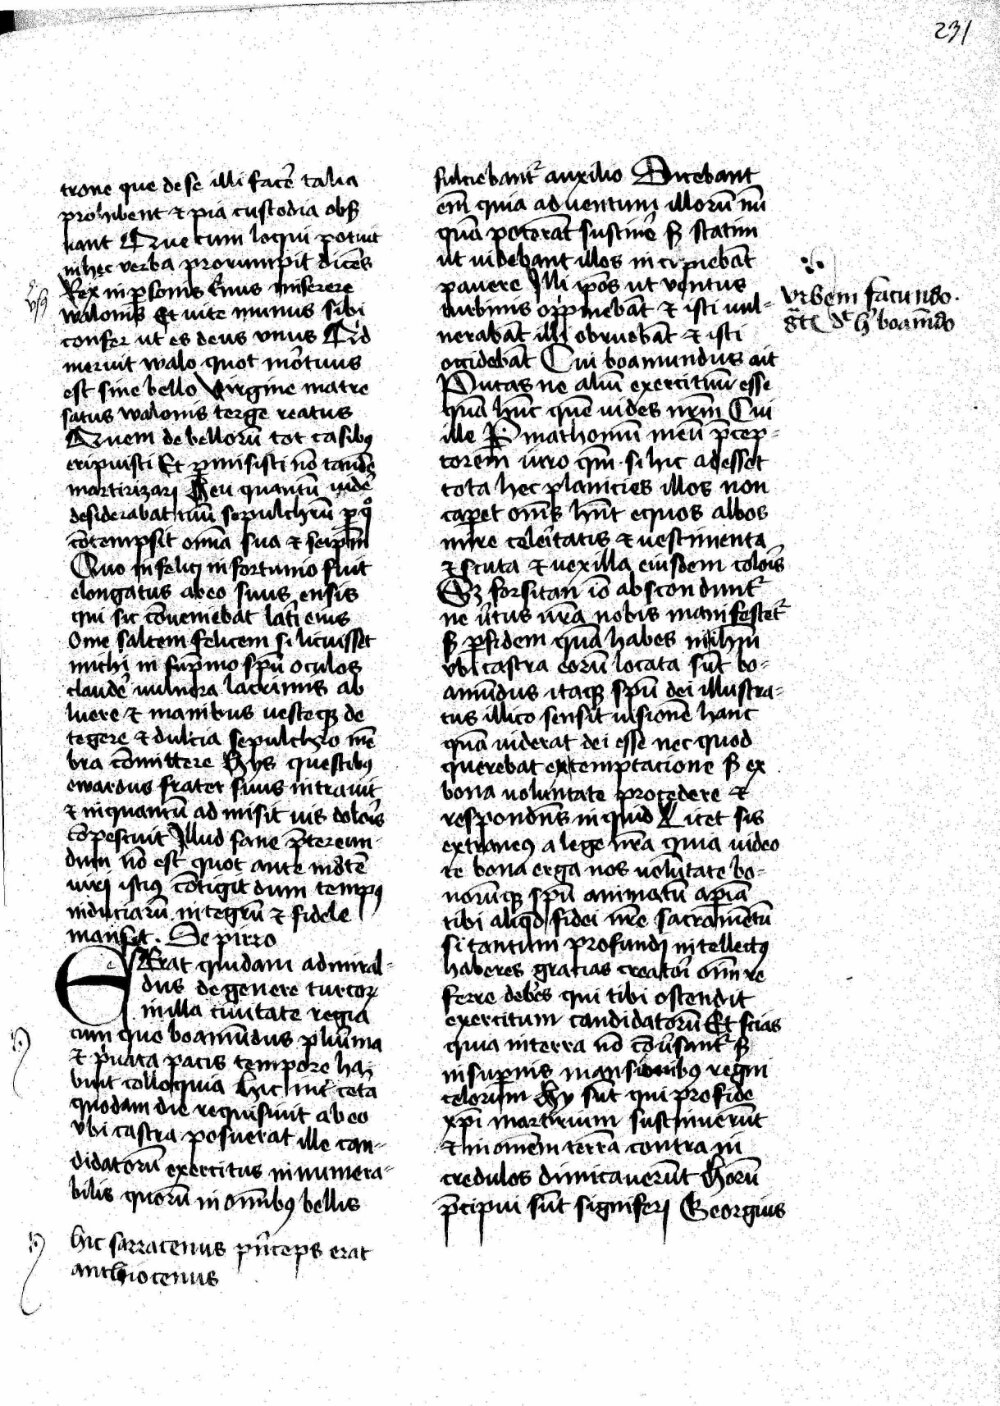 231
trone que de se illi facē talia
prohibent & pia custodia obs
uant Que cum loqui potuit
in hec verba prorumpit dicēs
Rex in psonis t'nus miserere
walonis Et vite munus sibi
confer ut es deus vnus Qid
meruit walo quot mortuus
est sine bello Virgine matre
satus walonis terge reatus
Quem de bellorū tot casibus
eripuisti Et pmisisti nō tandē
martirizari Heu quantū
desiderabat tuū sepulchrū
cōtempsit omīa sua & seipm
Quo infelici infortunio fuit
elongatus ab eo suus ensis
qui sic cōueniebat lat'i eius
O me saltem felicem si licuisset
michi in sup̄mo spū oculos
claudē uulnera lacrimis ab
luere & manibus uesteqꝫ de
tegere & dulcia sepulchro mē
bra cōmittere Hys questibus
ewardus frater suus intrauit
& inquantū admisit uis doloris
cōpescuit Illud sane p̄tereun-
dum nō est quot ante mōtē
uiri istius cōtigit dum tempus
induciarū integrū & fidele
mansit. De pirro
Erat quidam admiral-
dus de genere turcoꝝ
in illa ciuitate regia
cum quo boamūdus plurīma
& p'uata pacis tempore ha
buit colloquia Hic int' ceta
quodam die requisiuit ab eo
vbi castra posuerat ille can-
didatorū exercitus innumera-
bilis quorū in omībus bellis
hic sarracenus p'nceps erat
anthiocenus
fulciebant' auxilio Dicebant
em̄ quia aduentum illorū nū
quā poterāt sustinē sꝫ statim
ut uidebant illos incipiebāt
pauere Illi ipōs ut ventus
turbinis opp'mebāt & isti uul-
nerabāt illi obruebāt & isti
occidebāt Cui boamundus ait
Putas ne aliū exercitū esse
quā hūc quē uides nrm̄ Cui
ille P mathomū meū p̄cep-
torem iuro qm̄ si hic adesset
tota hec planicies illos non
capet om̄s hn̄t equos albos
mire celeritatis & uestimenta
& scuta & vexilla eiusdem coloris
Sꝫ forsitan iō abscondunt'
ne u'tus vr̄a nobis manifestet'
sꝫ p fidem quā habes in ihm̄
vbi castra eorū locata sūt bo-
amūdus itaqꝫ spū dei illustra-
tus illico sensit uisionē hanc
quā uiderat dei esse nec quod
querebat ex temptacione sꝫ ex
bona uoluntate procedere &
respondēs inquid Licet sis
extraneus a lege nr̄a quia uideo
te bona erga nos uolūtate bo-
norūqꝫ spū animatū apiā
tibi aliqd fidei nr̄e sacramētū
si tantum profundi intellectus
haberes gratias creatori om̄ re
ferre debēs qui tibi ostendit
exercitum candidatorū Et scias
quia in terra nō cōu'sant' sꝫ
in supnis mansionibus regni
celorum Hy sūt qui pro fide
xpi martirium sustinuerūt
& in omēm terrā contra in
credulos dimicauerūt Horū
p̄cipui sūt signiferi Georgius
vrbem facundo.